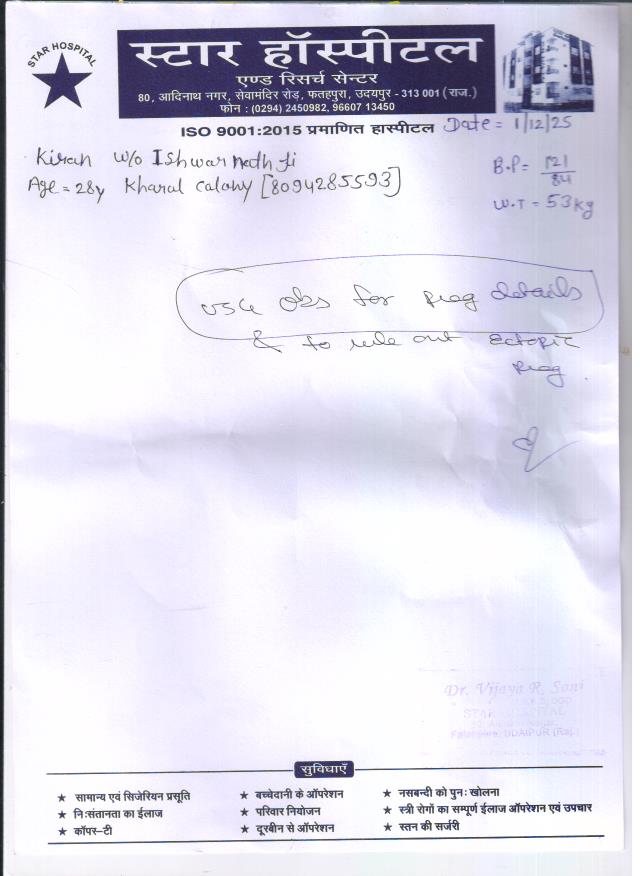 STAR HOSPITAL
स्टार हॉस्पीटल
एण्ड रिसर्च सेन्टर
80, आदिनाथ नगर, सेवामंदिर रोड़, फतहपुरा, उदयपुर - 313 001 (राज.)
फोन : (0294) 2450982, 96607 13450
ISO 9001:2015 प्रमाणित हास्पीटल
Date = 1/12/25
Kiran w/o Ishwar nath Ji
Age = 28y Kharol Colony [8094285593]
B.P = 121/84
W.T = 53kg
USG Obs for preg details
& to rule out Ectopic
preg
Dr. Vijaya R. Soni
STAR HOSPITAL
UDAIPUR (Raj.)
सुविधाएँ
★ सामान्य एवं सिजेरियन प्रसूति ★ बच्चेदानी के ऑपरेशन ★ नसबन्दी को पुनः खोलना
★ निःसंतानता का ईलाज ★ परिवार नियोजन ★ स्त्री रोगों का सम्पूर्ण ईलाज ऑपरेशन एवं उपचार
★ कॉपर–टी ★ दूरबीन से ऑपरेशन ★ स्तन की सर्जरी